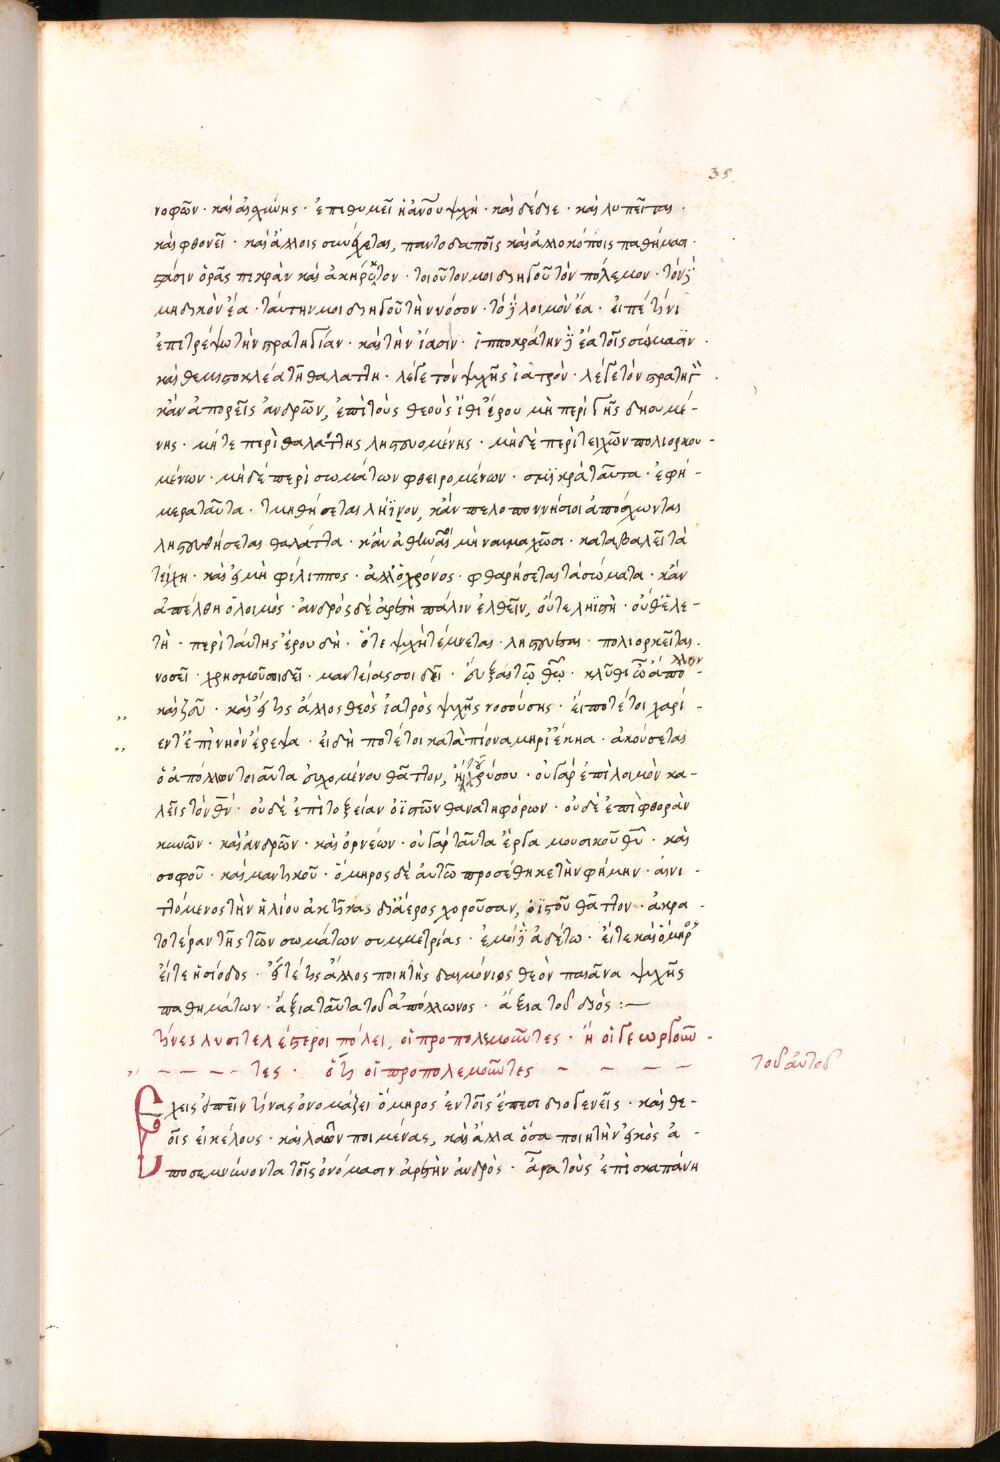 35
νοφῶν · καὶ αἰσχύνης · ἐπιθυμεῖ ἡ ἀνοῦ ψυχὴ · καὶ δέδιε · καὶ λυπεῖται ·
καὶ φθονεῖ · καὶ ἄλλοις συνέχεται, παντοδαποῖς καὶ ἀλλοκότοις παθήμασι ·
στάσιν ὁρᾷς πικρὰν καὶ ἀκήρυκτον · τοιοῦτον μοι διηγοῦ τὸν πόλεμον · τὸν δὲ
μηδικὸν ἔα · ταύτην μοι διηγοῦ τὴν νόσον · τὸν δὲ λοιμὸν ἔα · εἰπὲ τίνι
ἐπιτρέψω τὴν στρατηγίαν · καὶ τὴν ἴασιν · ἱπποκράτην δὲ ἔα τοῖς σώμασιν ·
καὶ θεμιστοκλέα τῇ θαλάττῃ · λέγε τὸν ψυχῆς ἰατρὸν · λέγε τὸν στρατηγὸν ·
κἂν ἀπορεῖς ἀνδρῶν, ἐπὶ τοὺς θεοὺς ἴθι ἔρου μὴ περὶ γῆς δῃουμέ-
νης · μήτε περὶ θαλάττης λῃστευομένης · μηδὲ περὶ τειχῶν πολιορκου-
μένων · μηδὲ περὶ σωμάτων φθειρομένων · σμικρὰ ταῦτα · ἐφή-
μερα ταῦτα · τμηθήσεται λήϊον, κἂν πελοποννήσιοι ἀπόσχωνται
λῃστευθήσεται θαλάττα · κἂν ἀθηναῖοι μὴ ναυμαχῶσι · καταβαλεῖ τὰ
τείχη · καὶ εἰ μὴ φίλιππος · ἀλλ' ὁ χρόνος · φθαρήσεται τὰ σώματα · κἂν
ἀπέλθῃ ὁ λοιμὸς · ἀνδρὸς δὲ ἀρετὴ πάλιν ἐλθεῖν, οὔτε ληϊστὴ · οὐθ' ἑλε-
τὴ · περὶ ταύτης ἔρου δὴ · ὅτε ψυχὴ τέμνεται · λῃστεύεται · πολιορκεῖται ·
νοσεῖ · χρησμοῦ σοι δεῖ · μαντείας σοι δεῖ · εὖξαι τῷ θεῷ · κλῦθι ὦ ἄπολλον
καὶ ζεῦ · καὶ εἴ τις ἄλλος θεὸς ἰατρὸς ψυχῆς νοσούσης · εἴ ποτέ τοι χαρί-
εντ' ἐπὶ νηὸν ἔρεψα · εἰ δή ποτέ τοι κατὰ πίονα μηρί' ἔκηα · ἀκούσεται
ὁ ἀπόλλων τοιαῦτα εὐχομένου θᾶττον, ἢ χρύσου · οὐ γὰρ ἐπὶ λοιμὸν κα-
λεῖς τὸν θεόν · οὐδὲ ἐπὶ τοξείαν ὀϊστῶν θανατηφόρων · οὐδὲ ἐπὶ φθορὰν
κυνῶν · καὶ ἀνδρῶν · καὶ ὀρνέων · οὐ γὰρ ταῦτα ἔργα μουσικοῦ θεοῦ · καὶ
σοφοῦ · καὶ μαντικοῦ · ὅμηρος δὲ αὐτῷ προσέθηκε τὴν φήμην · αἰνι-
ττόμενος τὴν ἡλίου ἀκτῖνας δι' ἀέρος χοροῦσαν, ὀϊστοῦ θᾶττον · ἀκρα-
τοτέραν τῆς τῶν σωμάτων συμμετρίας · ἐμοὶ δὲ ᾀδέτω · εἴτε καὶ ὅμηρος
εἴτε ἡσίοδος · εἴτέ τις ἄλλος ποιητὴς δαιμόνιος θεὸν παιᾶνα ψυχῆς
παθημάτων · ἄξια ταῦτα τοῦ ἀπόλλωνος · ἄξια τοῦ διός :—
τίνες λυσιτελέστεροι πόλει, οἱ προπολεμοῦντες · ἢ οἱ γεωργοῦν-
τες · ὅτι οἱ προπολεμοῦντες
τοῦ αὐτοῦ
Ἔχεις εἰπεῖν τίνας ὀνομάζει ὅμηρος ἐν τοῖς ἔπεσι διογενεῖς · καὶ θε-
οῖς εἰκέλους · καὶ λαῶν ποιμένας, καὶ ἄλλα ὅσα ποιητὴν εἰκὸς ἀ-
ποσεμνύνοντα τοῖς ὀνόμασιν ἀρετὴν ἀνδρὸς · ἆρα τοὺς ἐπὶ σκαπάνῃ